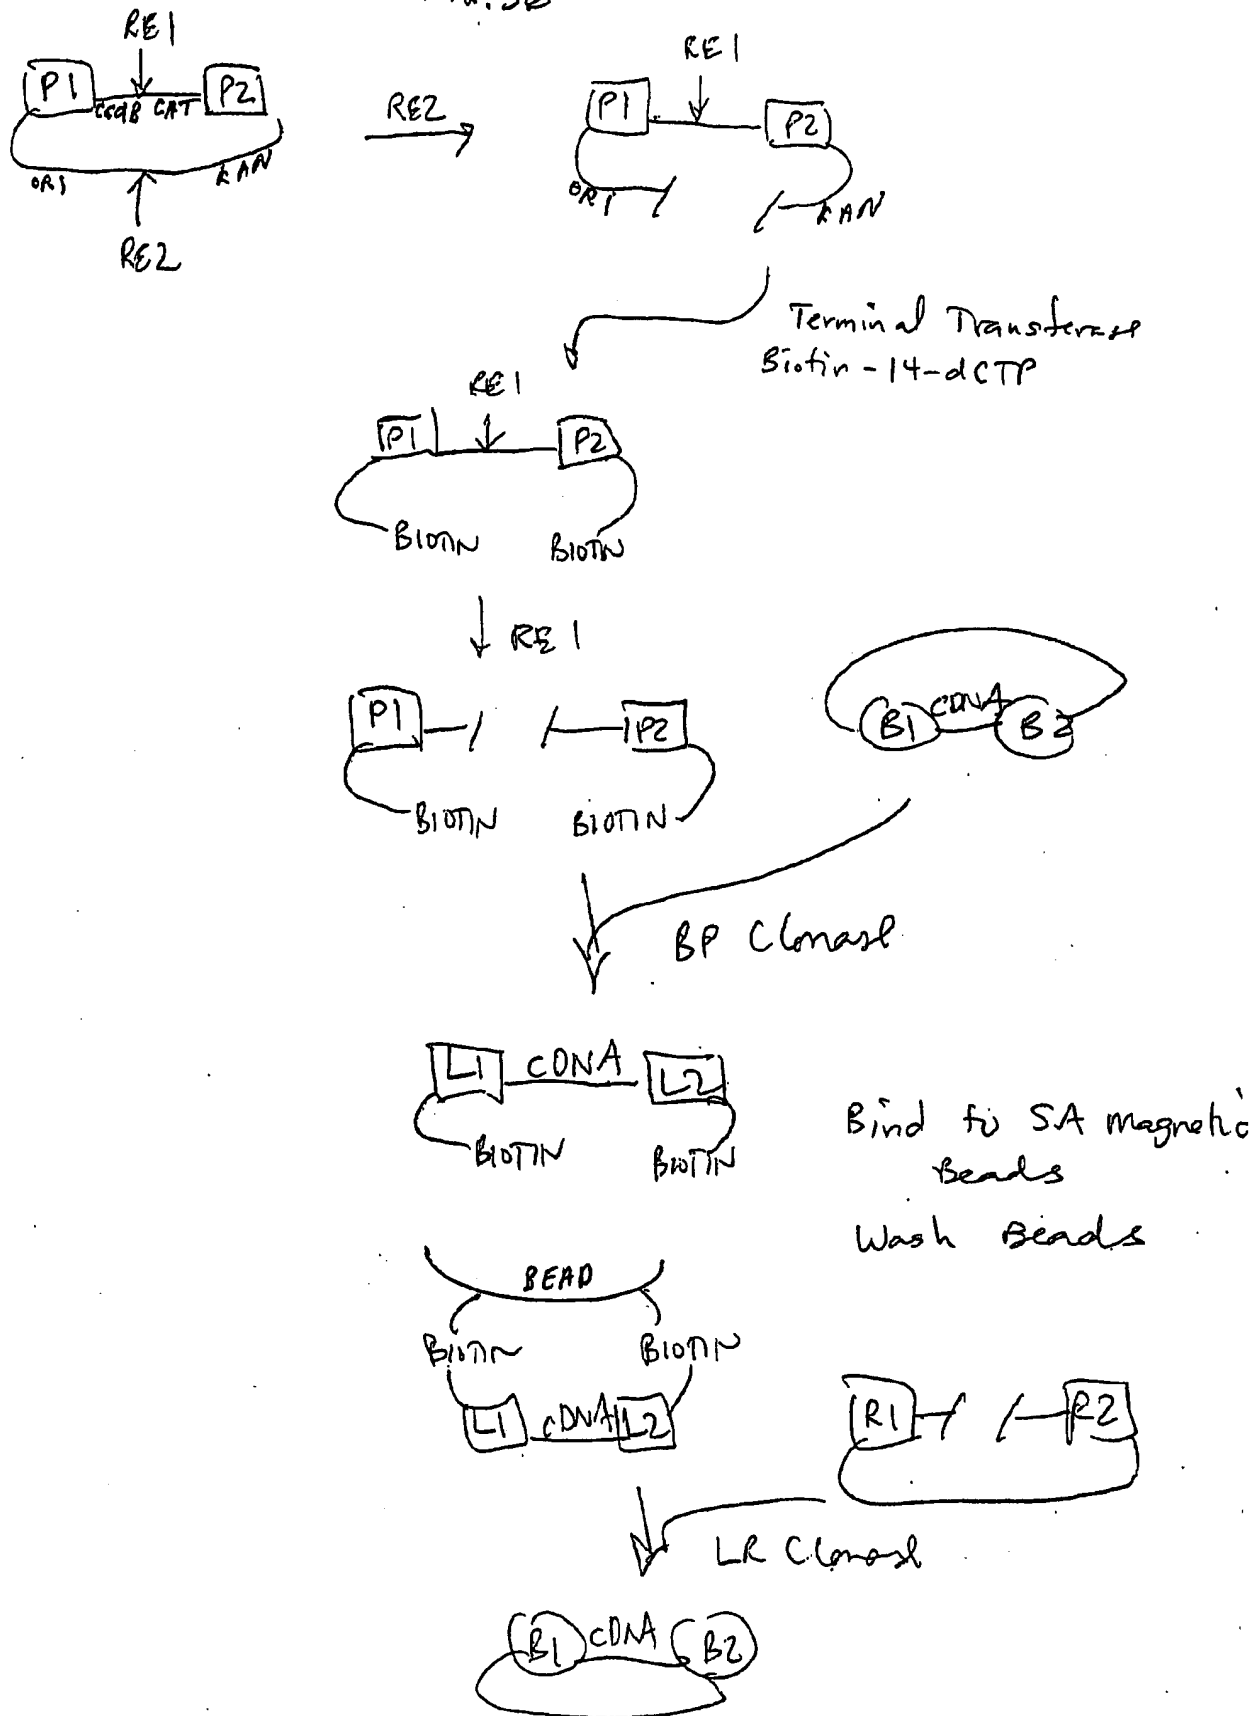 RE1
P1
P2
ccdB CAT
ORI
KAN
RE2
RE2
RE1
P1
P2
ORI
KAN
Terminal Transferase
Biotin-14-dCTP
RE1
P1
P2
BIOTIN
BIOTIN
RE1
P1
P2
BIOTIN
BIOTIN
B1
cDNA
B2
BP Clonase
L1
cDNA
L2
BIOTIN
BIOTIN
Bind to SA magnetic
Beads
Wash Beads
BEAD
BIOTIN
BIOTIN
L1
cDNA
L2
R1
R2
LR Clonase
B1
cDNA
B2